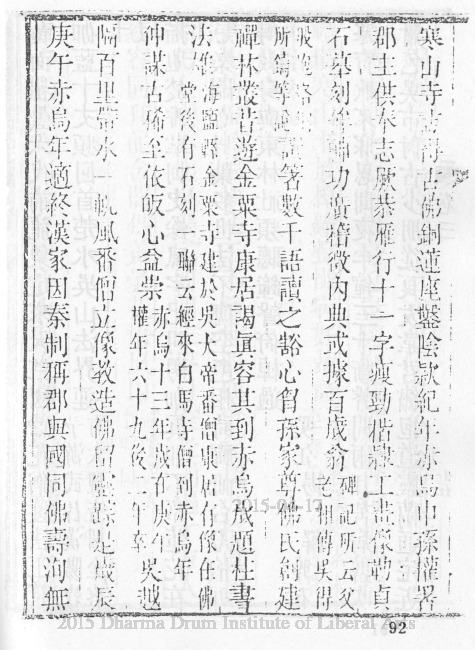 寒山寺訪得古佛銅蓮座鑿陰款紀年赤烏中孫權署
郡主供奉志厥恭雁行十一字瘦勁楷隸工畫像聘貞
石墓刻俾功廣稽微內典或據百歲翁碑記所云父老相傳吳得
所鑄等語說箸數千語讀之豁心胷孫家尊佛氏創建
禪林叢昔遊金粟寺康居謁眞容其到赤烏歲題柱書
法像海鹽縣金粟寺建於吳大帝番僧康居有像在佛堂後有石刻一聯云經來白馬寺僧到赤烏年
仲謀古稀至依皈心益崇赤烏十三年歲在庚午權年六十九後二年卒吳越
隔百里帶水一帆風番僧立像教造佛留靈踪是歲辰
庚午赤烏年適終漢家因秦制稱郡與國同佛壽洵無
92
2015-04-17
2015 Dharma Drum Institute of Liberal Arts